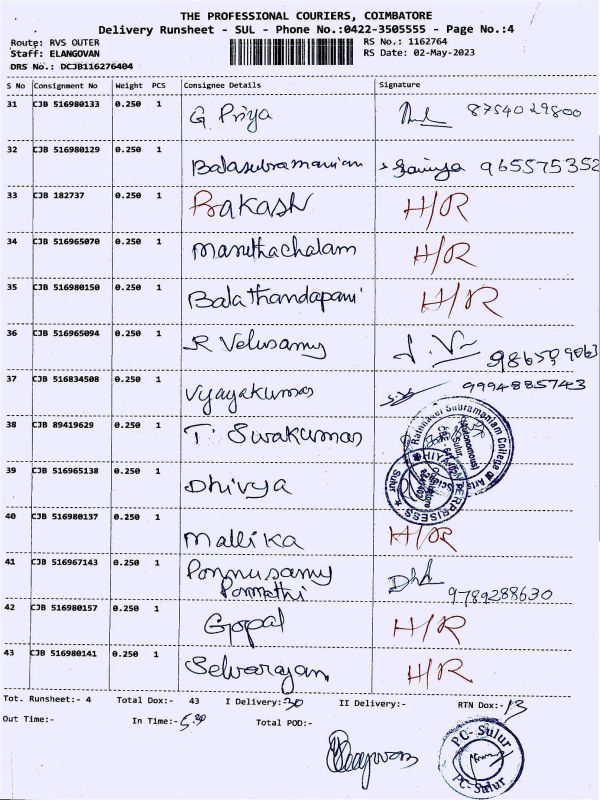 THE PROFESSIONAL COURIERS, COIMBATORE
Delivery Runsheet - SUL - Phone No.:0422-3505555 - Page No.:4
Route: RVS OUTER
Staff: ELANGOVAN
DRS No.: DCJB116276404
RS No.: 1162764
RS Date: 02-May-2023
S No Consignment No Weight PCS Consignee Details Signature
31 CJB 516980133 0.250 1 G Priya 8754029800
32 CJB 516980129 0.250 1 Balasubramanian 965575352
33 CJB 182737 0.250 1 Prakash H/R
34 CJB 516965070 0.250 1 Maruthachalam H/R
35 CJB 516980150 0.250 1 Balathandapani H/R
36 CJB 516965094 0.250 1 R Velusamy
37 CJB 516834508 0.250 1 Vijayakumar
38 CJB 89419629 0.250 1 T. Sivakumar
Rathnavel Subramaniam College of Arts
(Autonomous)
Sulur
39 CJB 516965138 0.250 1 Dhivya
40 CJB 516980137 0.250 1 Mallika H/R
41 CJB 516967143 0.250 1 Ponnusamy 9789288630
42 CJB 516980157 0.250 1 Gopal H/R
43 CJB 516980141 0.250 1 Selvarajan H/R
Tot. Runsheet:- 4 Total Dox:- 43 I Delivery:-30 II Delivery:- RTN Dox:-13
Out Time:- In Time:-5.30 Total POD:-
PC-Sulur
PC-Sulur